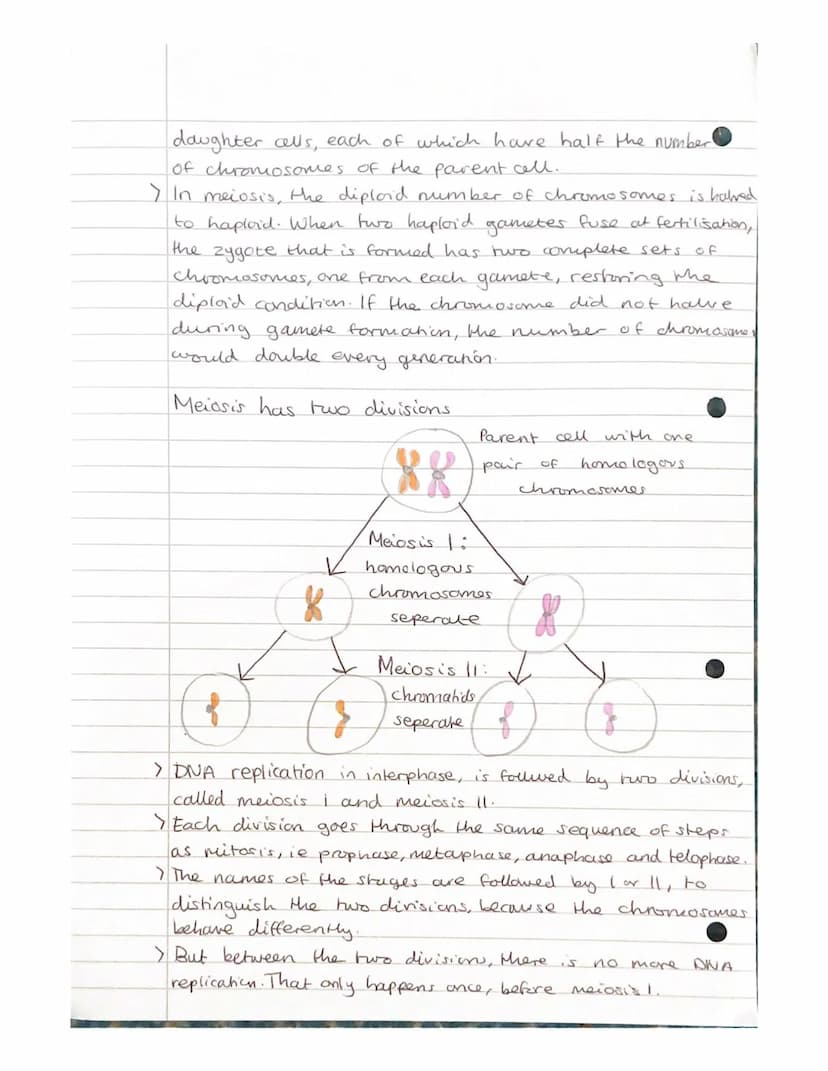 daughter cells, each of which have half the number
of chromosomes of the parent cell.
> In meiosis, the diploid number of chromosomes is halved
to haploid. When two haploid gametes fuse at fertilisation,
the zygote that is formed has two complete sets of
chromosomes, one from each gamete, restoring the
diploid condition. If the chromosome did not halve
during gamete formation, the number of chromosomes
would double every generation.
Meiosis has two divisions
Parent cell with one
pair of homologous
chromosomes
Meiosis I:
homologous
chromosomes
seperate
Meiosis II:
chromatids
seperate
> DNA replication in interphase, is follwed by two divisions,
called meiosis I and meiosis II.
> Each division goes through the same sequence of steps
as mitosis, ie prophase, metaphase, anaphase and telophase.
> The names of the stages are followed by I or II, to
distinguish the two divisions, because the chromosomes
behave differently.
> But between the two divisions, there is no more DNA
replication. That only happens once, before meiosis I.